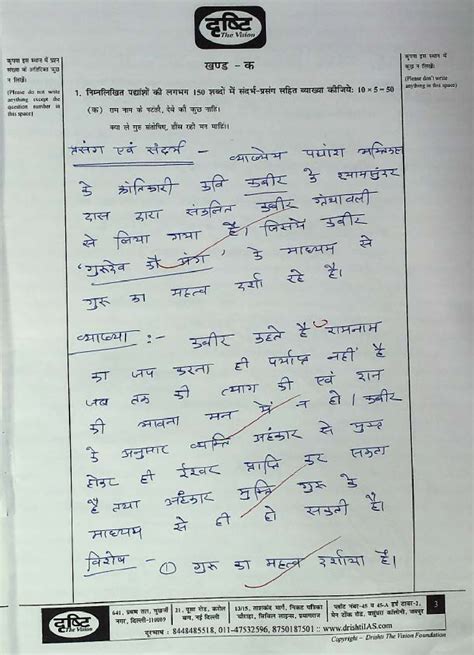 दृष्टि
The Vision
कृपया इस स्थान में प्रश्न
संख्या के अतिरिक्त कुछ
न लिखें।
(Please do not write
anything except the
question number in
this space)
कृपया इस स्थान में कुछ
न लिखें।
(Please don't write
anything in this space)
खण्ड - क
1. निम्नलिखित पद्यांशों की लगभग 150 शब्दों में संदर्भ-प्रसंग सहित व्याख्या कीजिये: 10 × 5 = 50
(क) राम नाम के पटंतरे, देबे कौं कछु नाहिं।
क्या ले गुरु संतोषिए, हौंस रही मन माहिं।
प्रसंग एवं संदर्भ - व्याख्येय पद्यांश भक्तिकाल
के क्रांतिकारी कवि कबीर के श्यामसुंदर
दास द्वारा संकलित कबीर ग्रंथावली
से लिया गया है। जिसमें कबीर
'गुरुदेव कौ अंग' के माध्यम से
गुरु का महत्व दर्शा रहे है।
व्याख्या :- कबीर कहते है रामनाम
का जप करना ही पर्याप्त नहीं है
जब तक की त्याग की एवं ज्ञान
की भावना मन में न हो। कबीर
के अनुसार व्यक्ति अहंकार से मुक्त
होकर ही ईश्वर प्राप्ति कर सकता
है तथा अहंकार मुक्ति गुरु के
माध्यम से ही हो सकती है।
विशेष - ① गुरु का महत्व दर्शाया है।
दृष्टि
The Vision
641, प्रथम तल, मुखर्जी
नगर, दिल्ली-110009
21, पूसा रोड, करोल
बाग, नई दिल्ली
13/15, ताशकंद मार्ग, निकट पत्रिका
चौराहा, सिविल लाइन्स, प्रयागराज
प्लॉट नंबर-45 व 45-A हर्ष टावर-2,
मेन टोंक रोड, वसुंधरा कॉलोनी, जयपुर
3
दूरभाष : 8448485518, 011-47532596, 8750187501 :: www.drishtiIAS.com
Copyright – Drishti The Vision Foundation